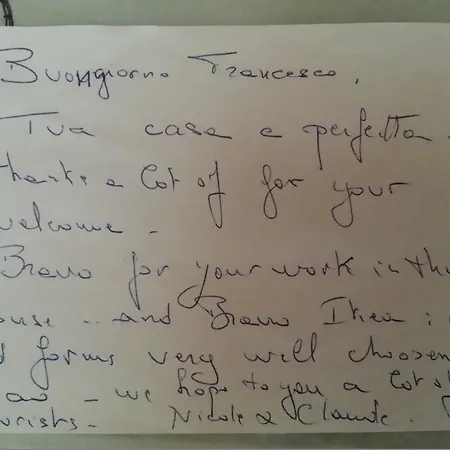 Buongiorno Francesco,
Tua casa e perfetta
thanks a lot of for your
welcome -
Bravo for your work in this
ouse .. and Bravo Ikea :
forms very well choosen
- we hope to you a lot of
ourists - Nicole & Claude.